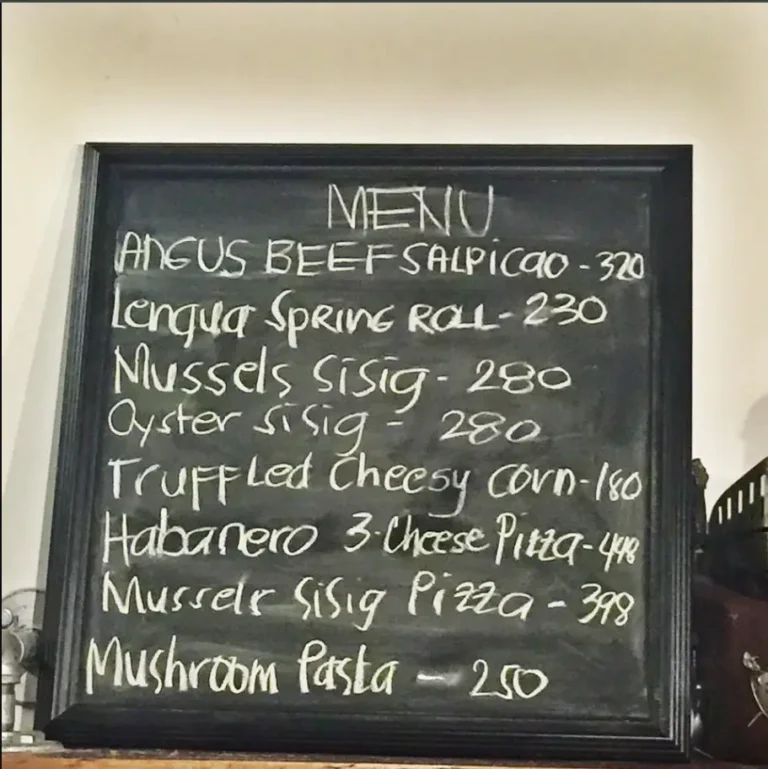 MENU
ANGUS BEEF SALPICAO - 320
Lengua SPRING ROLL - 230
Mussels Sisig - 280
Oyster Sisig - 280
TRUFFLed Cheesy corn - 180
Habanero 3-Cheese Pizza - 448
Mussels Sisig Pizza - 398
Mushroom Pasta - 250